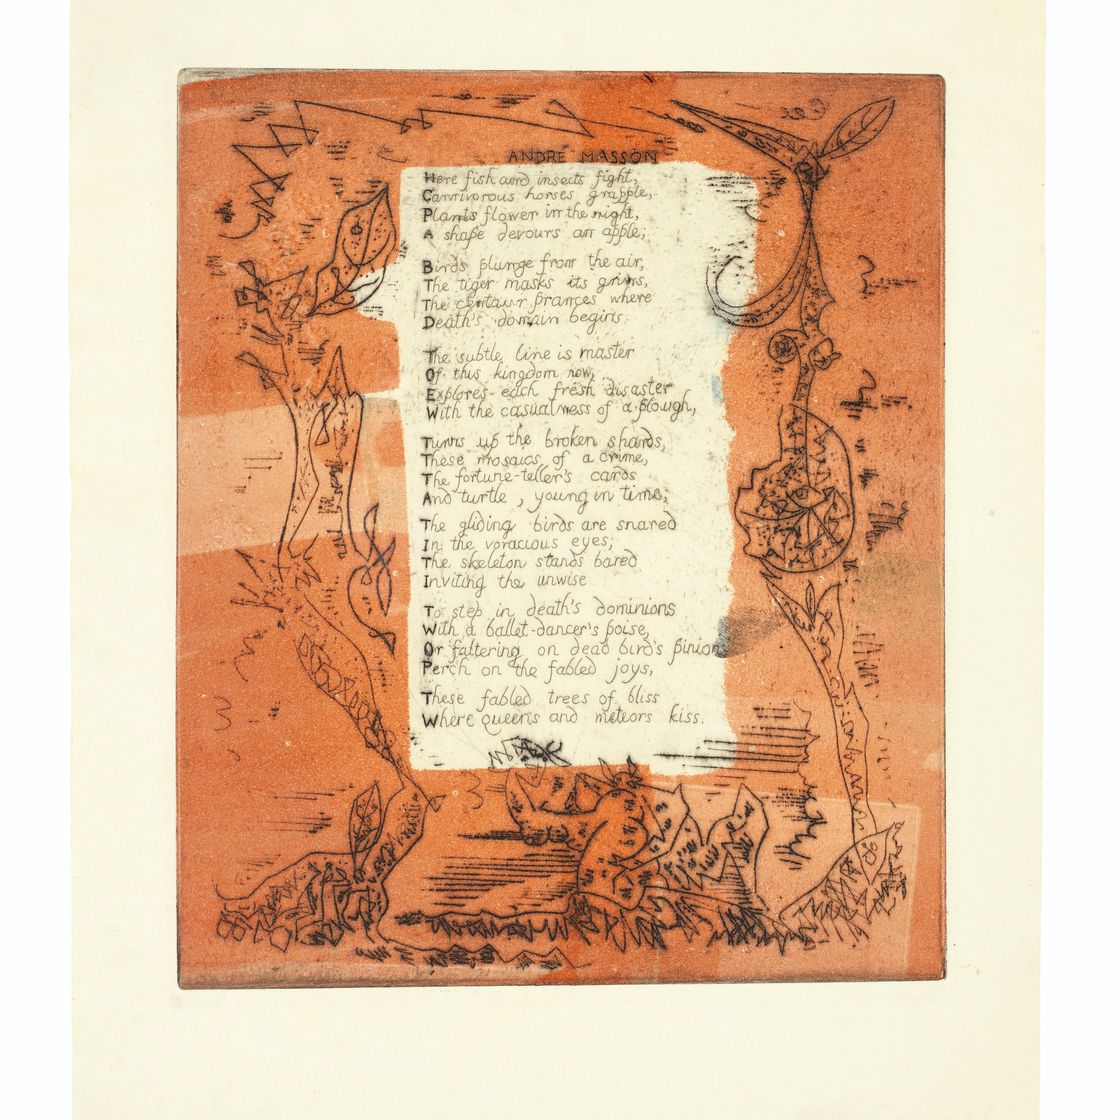 ANDRÉ MASSON
Here fish and insects fight,
Carnivorous horses grapple,
Plants flower in the night,
A shape devours an apple;
Birds plunge from the air,
The tiger masks its grins,
The centaur prances where
Death's domain begins.
The subtle line is master
Of this kingdom now,
Explores each fresh disaster
With the casualness of a plough,
Turns up the broken shards,
These mosaics of a crime,
The fortune-teller's cards
And turtle, young in time;
The gliding birds are snared
In the voracious eyes;
The skeleton stands bared
Inviting the unwise
To step in death's dominions
With a ballet-dancer's poise,
Or faltering on dead bird's pinions
Perch on the fabled joys,
These fabled trees of bliss
Where queens and meteors kiss.